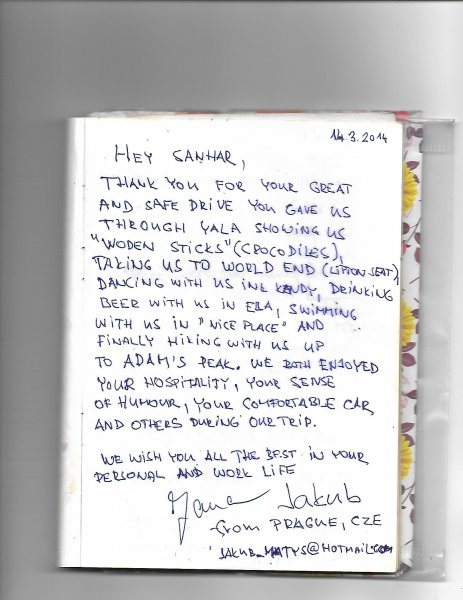 14.3.2014
HEY SANHAR,
THANK YOU FOR YOUR GREAT
AND SAFE DRIVE YOU GAVE US
THROUGH YALA SHOWING US
"WODEN STICKS" (CROCODILES),
TAKING US TO WORLD END (LIPTON SEAT),
DANCING WITH US IN KANDY, DRINKING
BEER WITH US IN ELLA, SWIMMING
WITH US IN "NICE PLACE" AND
FINALLY HIKING WITH US UP
TO ADAM'S PEAK. WE BOTH ENJOYED
YOUR HOSPITALITY, YOUR SENSE
OF HUMOUR, YOUR COMFORTABLE CAR
AND OTHERS DURING OUR TRIP.
WE WISH YOU ALL THE BEST IN YOUR
PERSONAL AND WORK LIFE
Jana Jakub
from PRAGUE, CZE
JAKUB_MATYS@HOTMAIL.COM